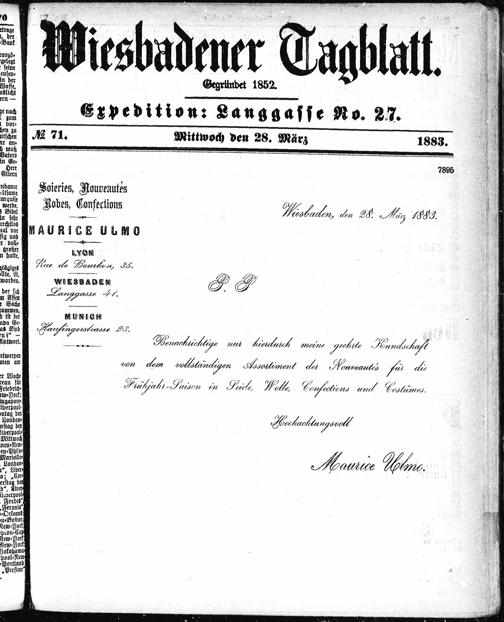 Wiesbadener Tagblatt.
Gegründet 1852.
Expedition: Langgasse No. 27.
№ 71. Mittwoch den 28. März 1883.
7895
Soieries, Nouveautés
Robes, Confections
MAURICE ULMO
LYON
Rue de Bourbon, 35.
WIESBADEN
Langgasse 41.
MUNICH
Kaufingerstrasse 23.
Wiesbaden, den 28. März 1883.
P. P.
Benachrichtige nur hiedurch meine geehrte Kundschaft
von dem vollständigen Assortiment der Nouveautés für die
Frühjahr-Saison in Seide, Wolle, Confections und Costümes.
Hochachtungsvoll
Maurice Ulmo.